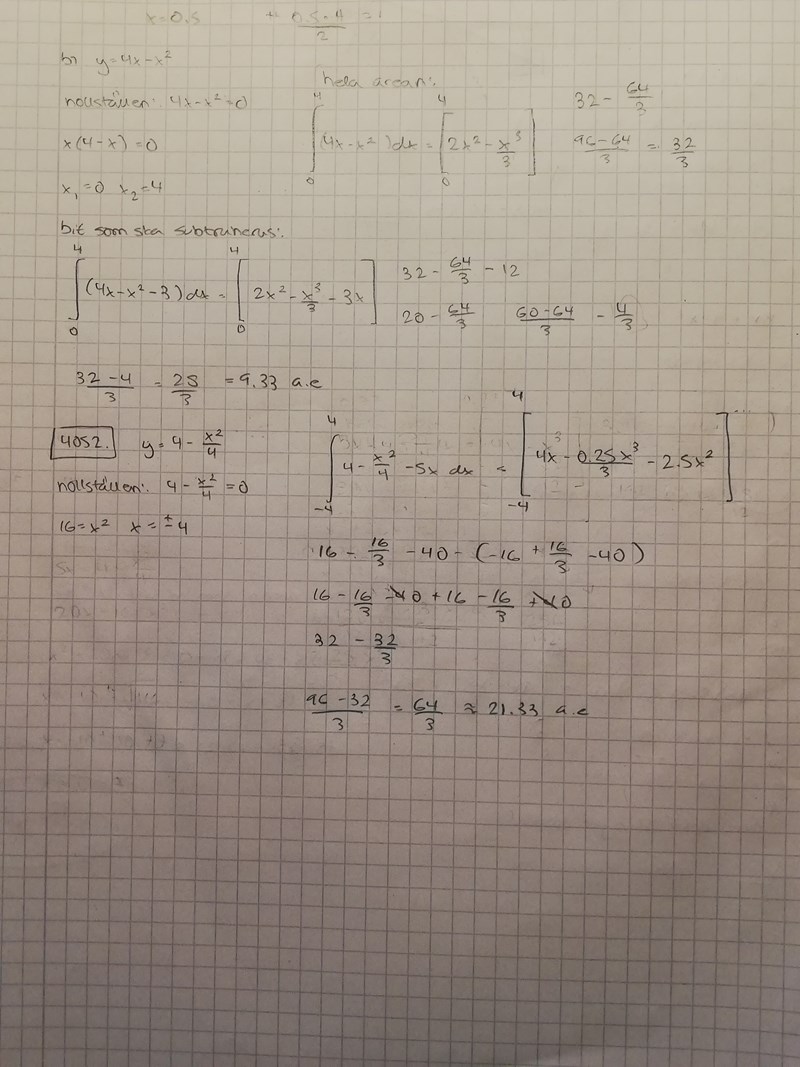 x = 0.5
b) y = 4x - x²
nollställen: 4x - x² = 0
x(4 - x) = 0
x₁ = 0 x₂ = 4
hela arean:
∫₀⁴ (4x - x²) dx = [2x² - x³/3]₀⁴
32 - 64/3
(96 - 64)/3 = 32/3
bit som ska subtraheras:
∫₀⁴ (4x - x² - 3) dx = [2x² - x³/3 - 3x]₀⁴
32 - 64/3 - 12
20 - 64/3 (60 - 64)/3 - 4/3
(32 - 4)/3 = 28/3 = 9.33 a.e
4052. y = 4 - x²/4
nollställen: 4 - x²/4 = 0
16 = x² x = ± 4
∫₋₄⁴ 4 - x²/4 - 5x dx = [4x - 0.25x³/3 - 2.5x²]₋₄⁴
16 - 16/3 - 40 - (-16 + 16/3 - 40)
16 - 16/3 - 40 + 16 - 16/3 + 40
32 - 32/3
(96 - 32)/3 = 64/3 ≈ 21.33 a.e